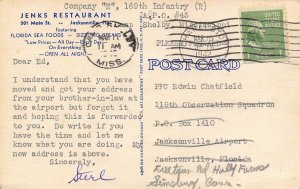 Company "E", 169th Infantry (R)
JENKS RESTAURANT
201 Main St. - Jacksonville,
Featuring
FLORIDA SEA FOODS - SIZZLING STEAKS
"Low Prices - All Day -
On Everything"
- OPEN ALL NIGHT
A.P.O. #43
Camp Shelby,
11 AM
MISS.
POST CARD
Dear Ed,
I understand that you have
moved and got your address
from your brother-in-law at
the airport and hoping
this is forwarded
to you. Do write if you
have the time and let me
know what you are doing. My
new address is above.
Sincerely,
PFC Edwin Chatfield
118th Observation Squadron
P.O. Box 1410
Jacksonville Airport
Jacksonville, Florida
Farms
Simsbury, Conn.